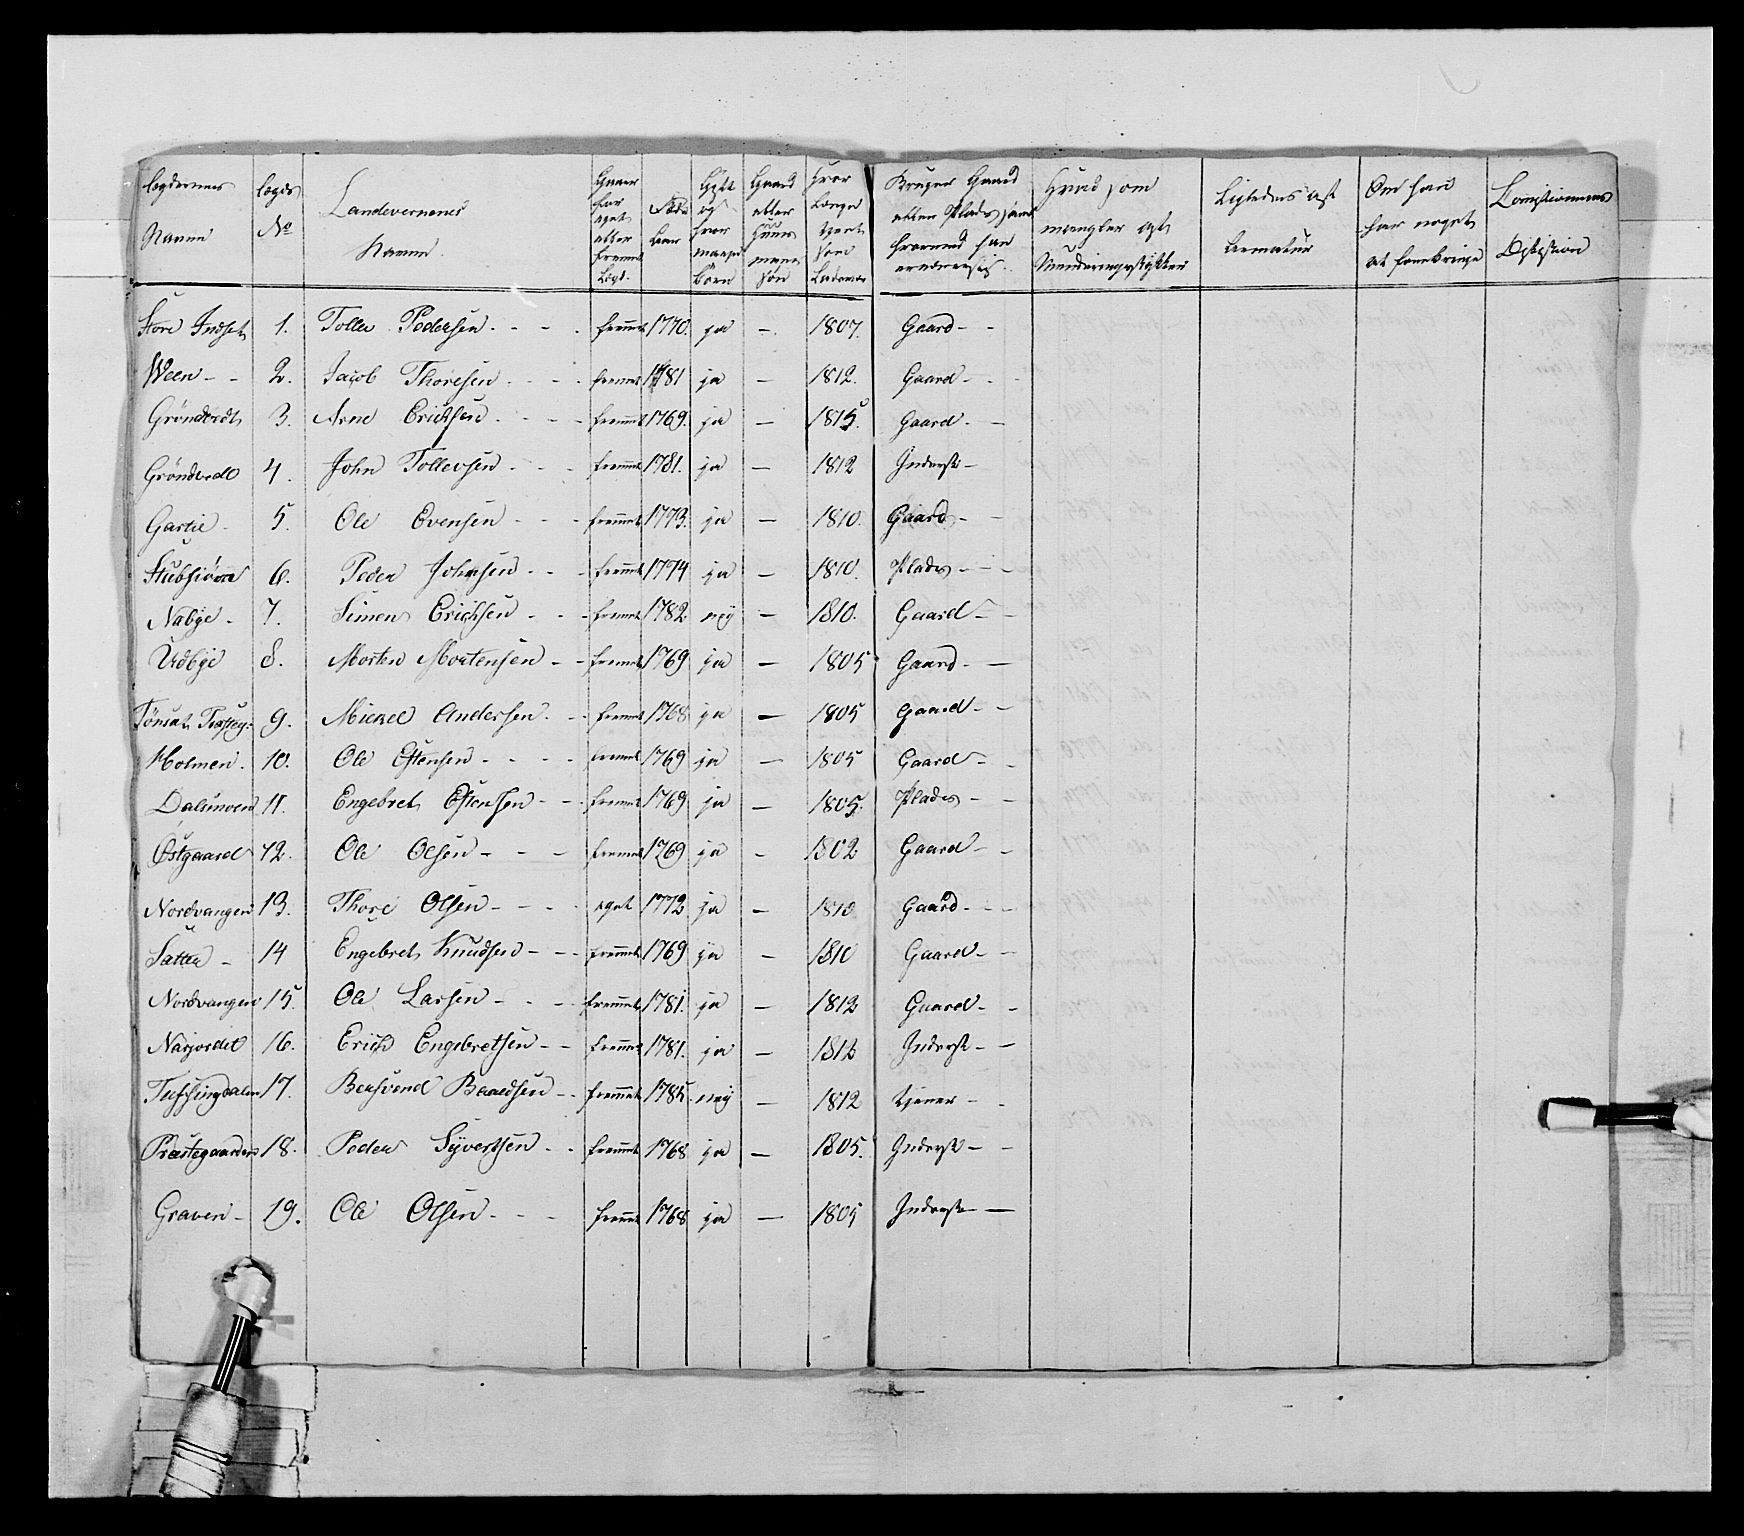 Lægdernes Navne | Lægds No | Landevernenes Navne | Gaaer for eget eller fremmet Lægd. | Føde Aar | Gift og hvor mange Børn | Gaard eller Huus mands søn | Hvor Længe tient som Landeværn | Bruger Gaard eller Plads samt hvormed han ernærer sig. | Hvad som mangler af Munderingsstykker | Ligeledes af Armatur | Om han har noget at frembringe | Comissionens Decision
Store Indset 1. Tollev Pedersen fremmet 1770. ja — 1807. Gaard
Ween 2. Jacob Thoresen fremmet 1781 ja — 1812. Gaard
Gröndredt 3. Arne Ericksen fremmet 1769. ja — 1815. Gaard
Gröndredt 4. John Tollevsen fremmet 1781. ja — 1812 Inderst
Gartie 5. Ole Evensen fremmet 1773. ja — 1810. Gaard
Stubsiöere 6. Peder Johnsen fremmet 1774 ja — 1810. Plads
Nabye 7. Simen Erichsen fremmet 1782 nej — 1810. Gaard
Udbye 8. Morten Mortensen fremmet 1769 ja — 1805 Gaard
Tönset 9. Mickel Andersen fremmet 1768 ja — 1805 Gaard
Holmen 10. Ole Estensen fremmet 1769 ja — 1805 Gaard
Dalsmoen 11. Engebret Estensen fremmet 1769 ja — 1805. Plads
Östgaard 12. Ole Olsen fremmet 1769 ja — 1802 Gaard
Nordvangen 13. Thore Olsen eget 1772 ja — 1810 Gaard
Sætter 14 Engebret Knudsen fremmet 1769 ja — 1810 Gaard
Nordvangen 15. Ole Larsen fremmet 1781. ja — 1812 Gaard
Narjordet 16. Erich Engebretsen fremmet 1781. ja — 1812 Inderst
Tufsingdalen 17. Bersvend Baardsen fremmet 1785. nej — 1812 tjener
Præstegaarden 18. Peder Syversen fremmet 1768 ja — 1805. Inderst
Graven 19. Ole Olsen fremmet 1768 ja — 1805 Inderst